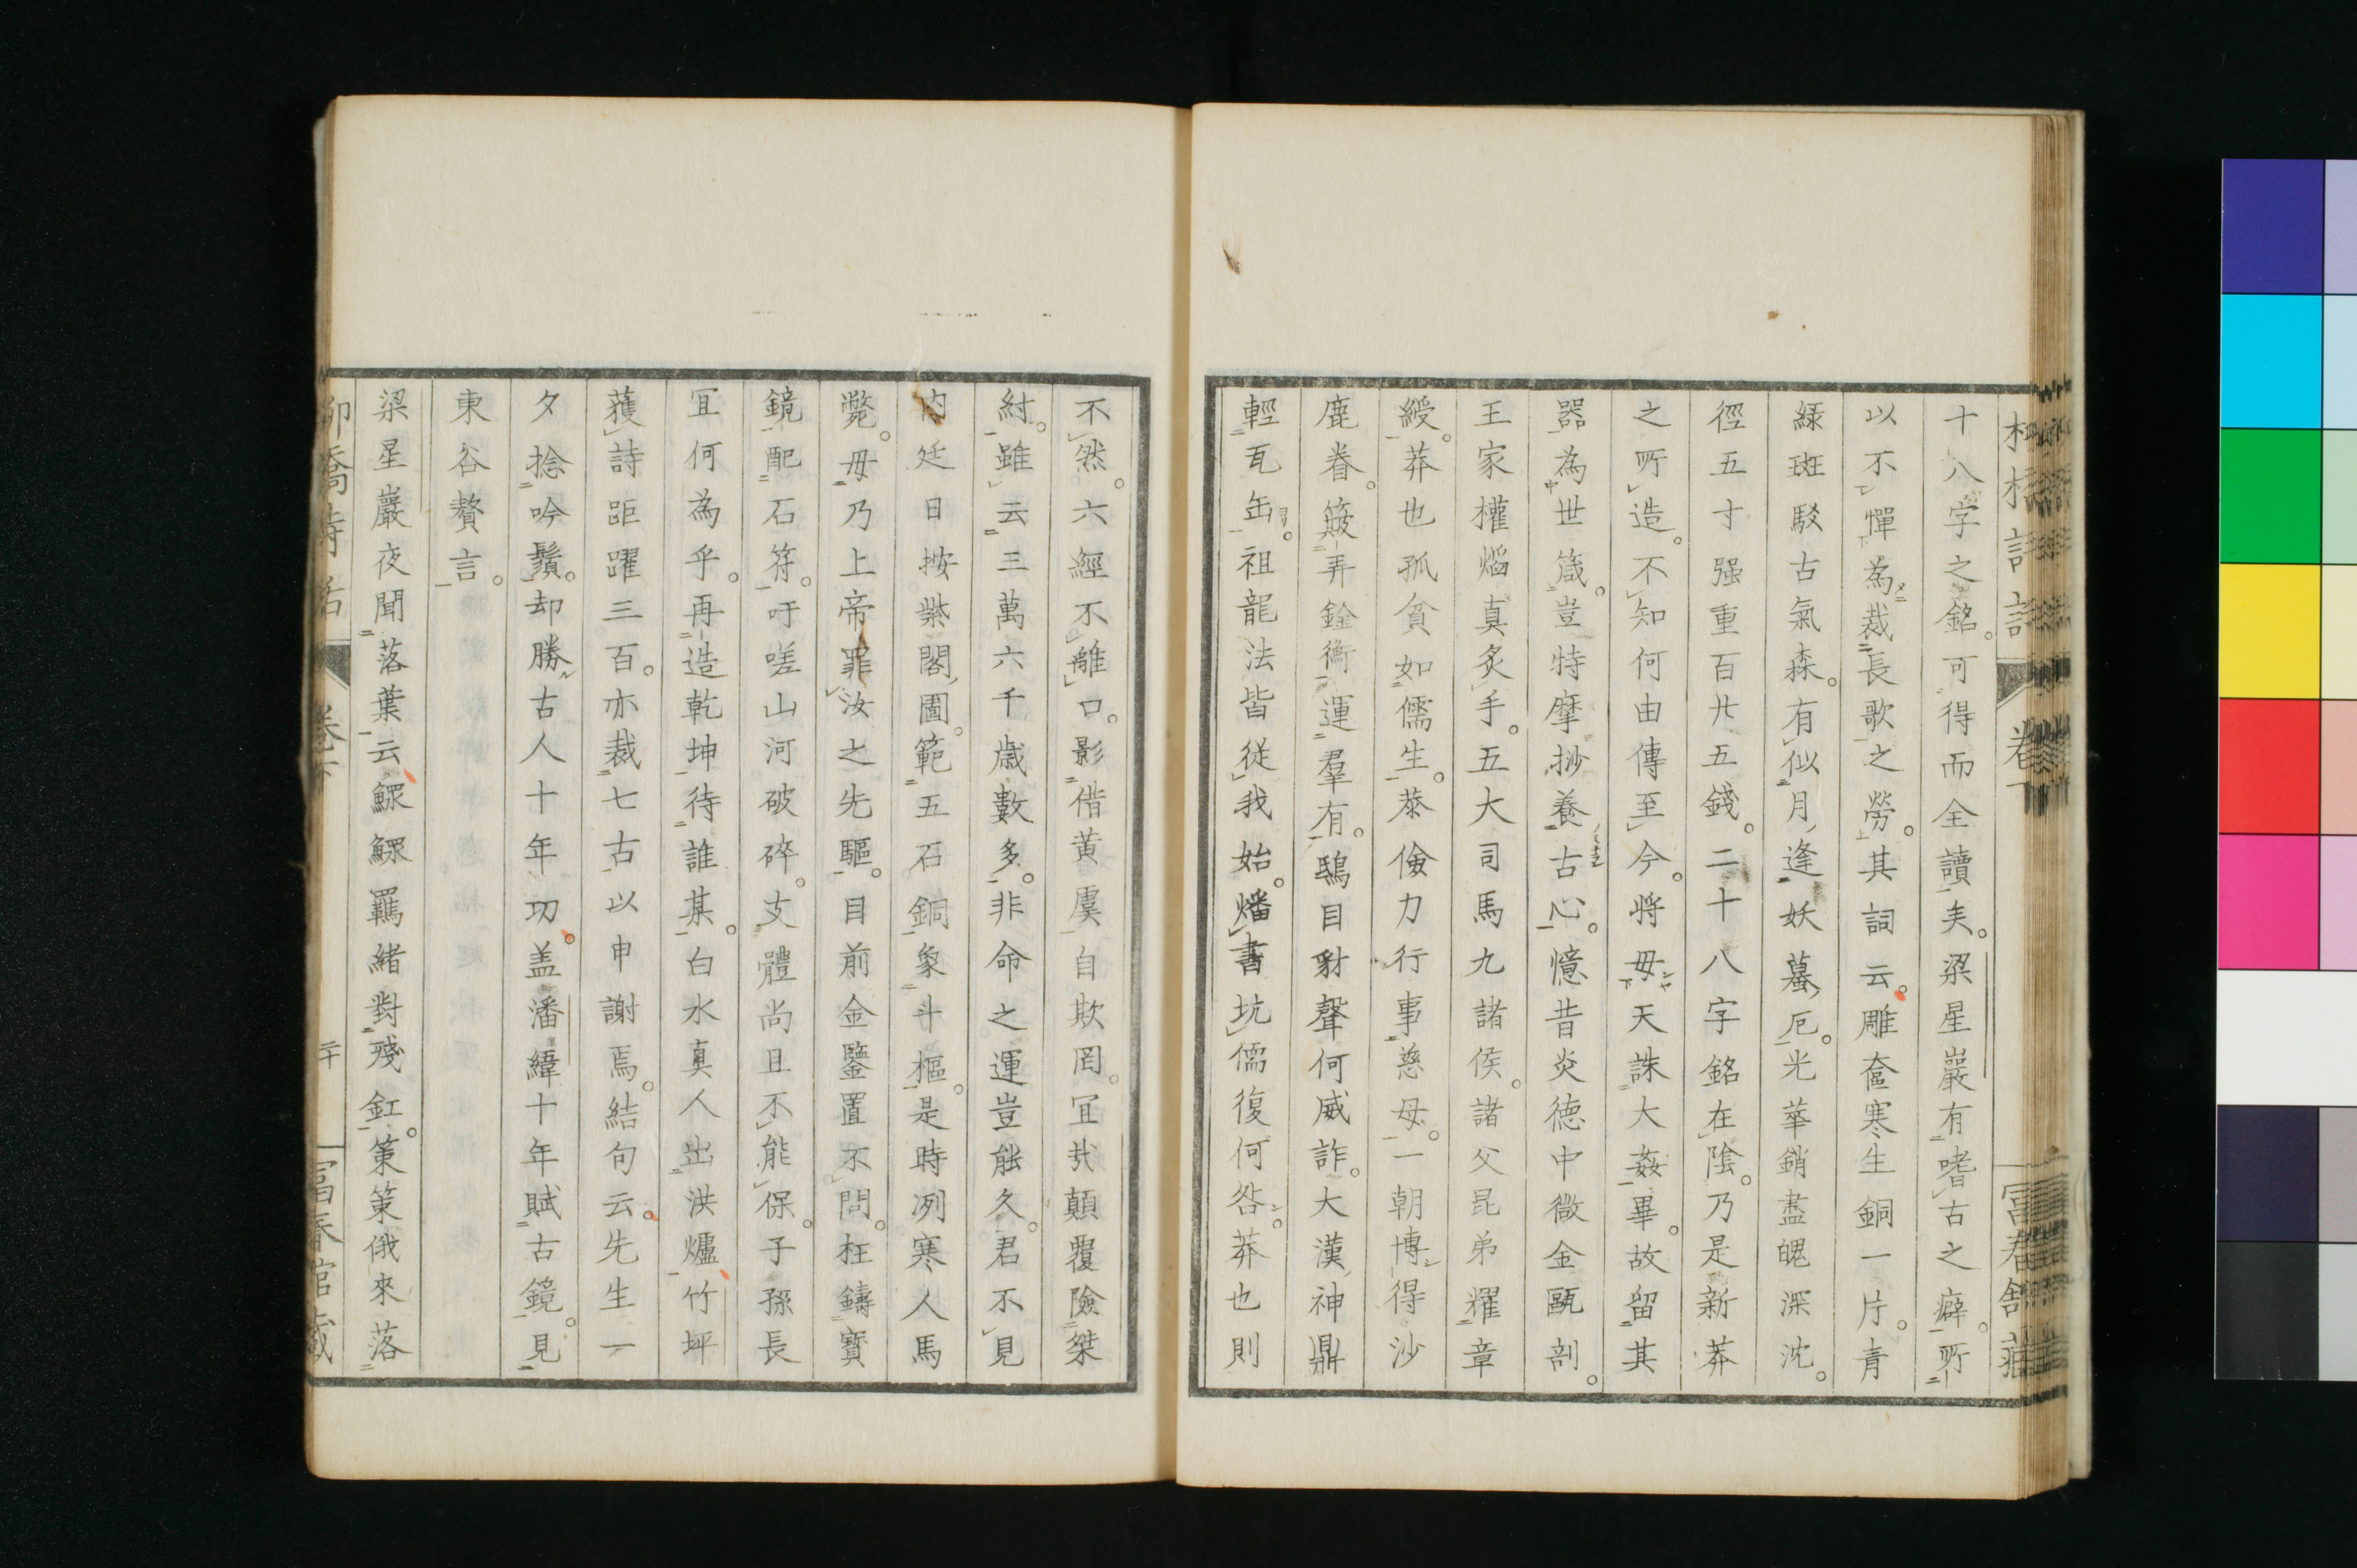 十八字之銘。可得而全讀矣。梁星巖有嗜古之癖。所
以不憚為裁長歌之勞。其詞云。雕奩寒生銅一片。青
緑斑駁古氣森。有似月逢妖蟇厄。光華銷盡魄深沈。
徑五寸强重百廿五錢。二十八字銘在陰。乃是新莽
之所造。不知何由傳至今。將毋天誅大姦畢。故留其
器為世箴。豈特摩挲養古心。憶昔炎德中微金甌剖。
王家權熖真炙手。五大司馬九諸侯。諸父昆弟耀章
綬。莽也孤貧如儒生。恭儉力行事慈母。一朝博得沙
鹿眷。簸弄銓衡運羣有。鴟目豺聲何威詐。大漢神鼎
輕瓦缶。祖龍法皆從我始。燔書坑儒復何咎。莽也則
不然。六經不離口。影借黄虞自欺罔。冝㢤顛覆險桀
紂。雖云三萬六千歳數多。非命之運豈能久。君不見
内廷日按紫閣圖。範五石銅象斗樞。是時冽寒人馬
斃。毋乃上帝罪汝之先驅。目前金鑒置不問。枉鑄寳
鏡配石符。吁嗟山河破碎。支體尚且不能保。子孫長
冝何為乎。再造乾坤待誰某。白水真人出洪爐竹坪
獲詩距躍三百。亦裁七古以申謝焉。結句云。先生一
夕捻吟鬚。却勝古人十年功。盖潘緯十年賦古鏡。見
東谷贅言。
梁星巖夜聞落葉云鰥鰥羈緒對殘釭。策策俄來落
柳橋詩話
卷下
二十